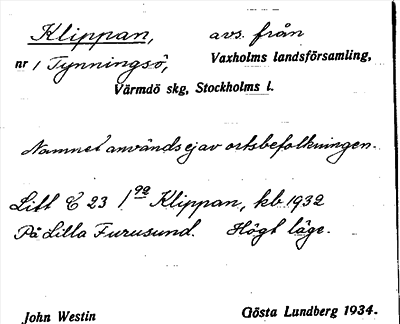 Klippan, avs. från
nr 1 Tynningsö, Vaxholms landsförsamling,
Värmdö skg, Stockholms l.
Namnet användes ej av ortsbefolkningen.
Litt C 23 1 99 Klippan, kb 1932
På Lilla Furusund. Högt läge.
John Westin Gösta Lundberg 1934.